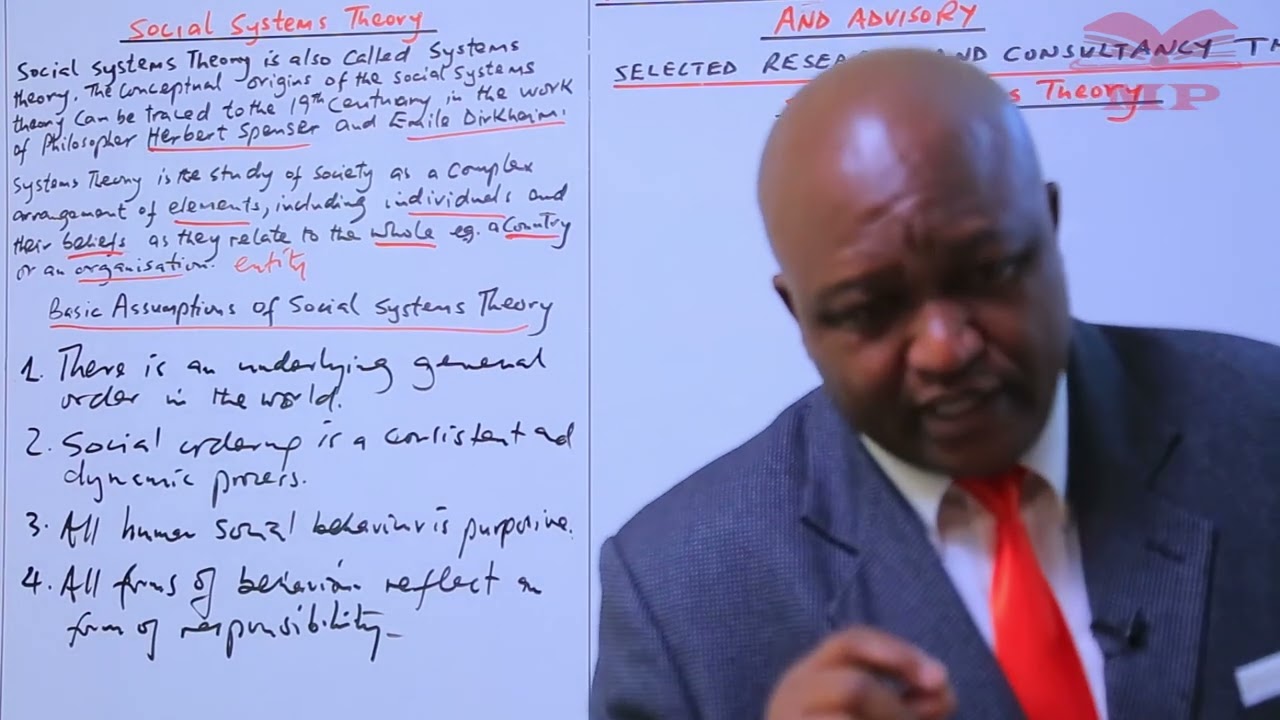 Social Systems Theory
Social systems Theory is also called Systems
theory. The conceptual origins of the social systems
theory can be traced to the 19th Centuary in the work
of Philosopher Herbert Spenser and Emile Dirkheim.
Systems Theory is the study of society as a complex
arrangement of elements, including individuals and
their beliefs as they relate to the whole eg. a Country
or an organisation. entity
Basic Assumptions of Social Systems Theory
1. There is an underlying general
order in the world.
2. Social ordering is a consistent and
dynamic process.
3. All human social behaviour is purposive.
4. All forms of behaviour reflect a
form of responsibility
AND ADVISORY
SELECTED AND CONSULTANCY TH
Theory
MP